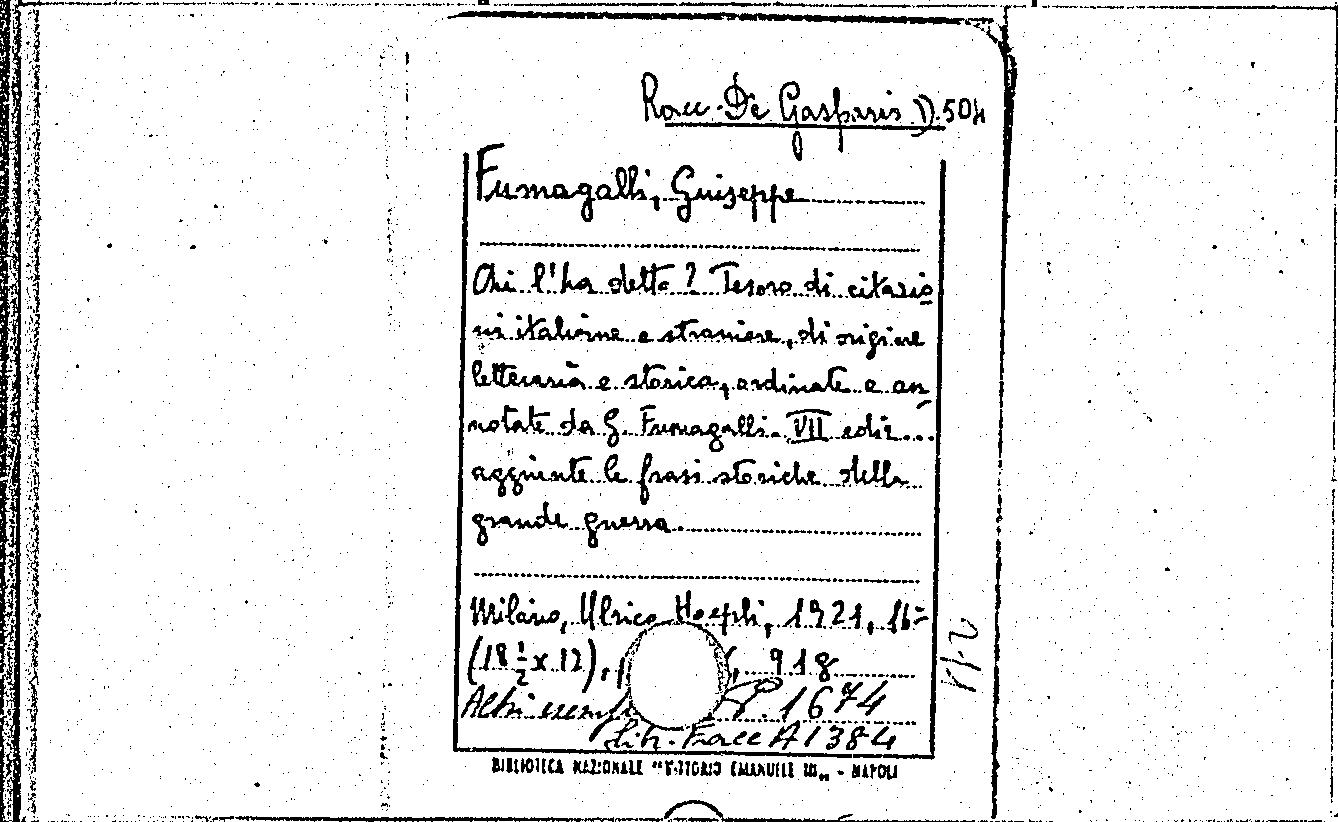 Racc. De Gasparis D. 504
Fumagalli, Giuseppe
Chi l'ha detto? Tesoro di citazio
ni italiane e straniere, di origine
letteraria e storica, ordinate e an
notate da G. Fumagalli. VII ediz...
aggiunte le frasi storiche della
grande guerra.
Milano, Ulrico Hoepli, 1921, 16º
(18 1/2 x 12), 918
Altri P. 1674
A 1384
BIBLIOTECA NAZIONALE "VITTORIO EMANUELE III" - NAPOLI